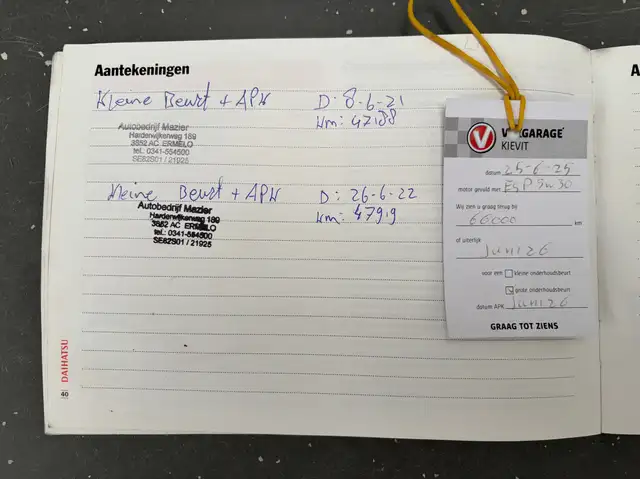 Aantekeningen
Kleine Beurt + APK D: 8-6-21
Km: 47188
Autobedrijf Mazier
Harderwijkerweg 189
3852 AC ERMELO
tel.: 0341-554500
SE82S01 / 21925
Kleine Beurt + APK D: 26-6-22
Km: 47919
Autobedrijf Mazier
Harderwijkerweg 189
3852 AC ERMELO
tel.: 0341-554500
SE82S01 / 21925
DAIHATSU
40
VAKGARAGE
KIEVIT
datum 25-6-25
motor gevuld met: 5W30
Wij zien u graag terug bij
66000 km
of uiterlijk
Juni 26
voor een kleine onderhoudsbeurt
grote onderhoudsbeurt
datum APK Juni 26
GRAAG TOT ZIENS